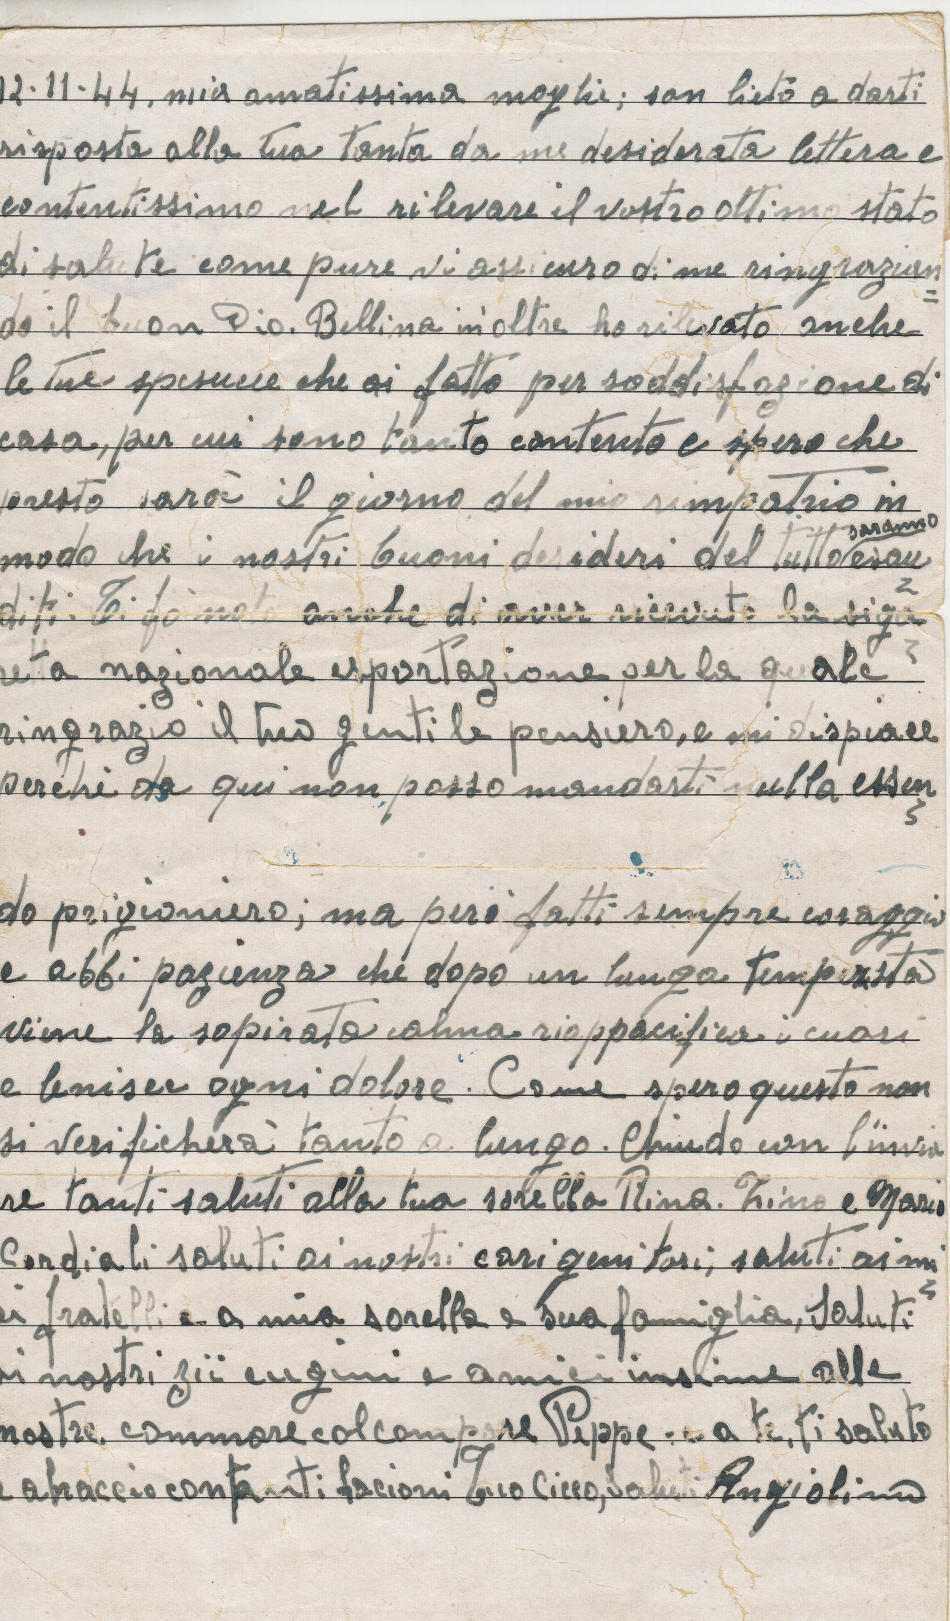 12.11.44. mia amatissima moglie; son lieto a darti
risposta alla tua tanta da me desiderata lettera e
contentissimo nel rilevare il vostro ottimo stato
di salute come pure vi assicuro di me ringrazian
do il buon Dio. Bellina in'oltre ho rilevato anche
le tue spesucce che ai fatto per soddisfazione di
casa, per cui sono tanto contento e spero che
presto sarà il giorno del mio rimpatrio in
modo che i nostri buoni desideri del tutto saranno esau
diti. Ti fò noto anche di aver ricevuto la siga
retta nazionale esportazione per la quale
ringrazio il tuo gentile pensiero, e mi dispiace
perché da qui non posso mandarti nulla essen
do prigioniero; ma però fatti sempre coraggio
e abbi pazienza che dopo un lunga tempesta
viene la sopirata calma riappacifica i cuori
e lenisce ogni dolore. Come spero questo non
si verificherà tanto a lungo. Chiudo con l'invia
re tanti saluti alla tua sorella Rina. Zino e Mario
Cordiali saluti ai nostri cari genitori, saluti ai mi
ei fratelli e a mia sorella e sua famiglia, Saluti
ai nostri zii cugini e amici insime alle
nostre commare col compare Peppe e a te, ti saluto
e abraccio contanti bacioni Tuo Cicco, Saluti Angiolino